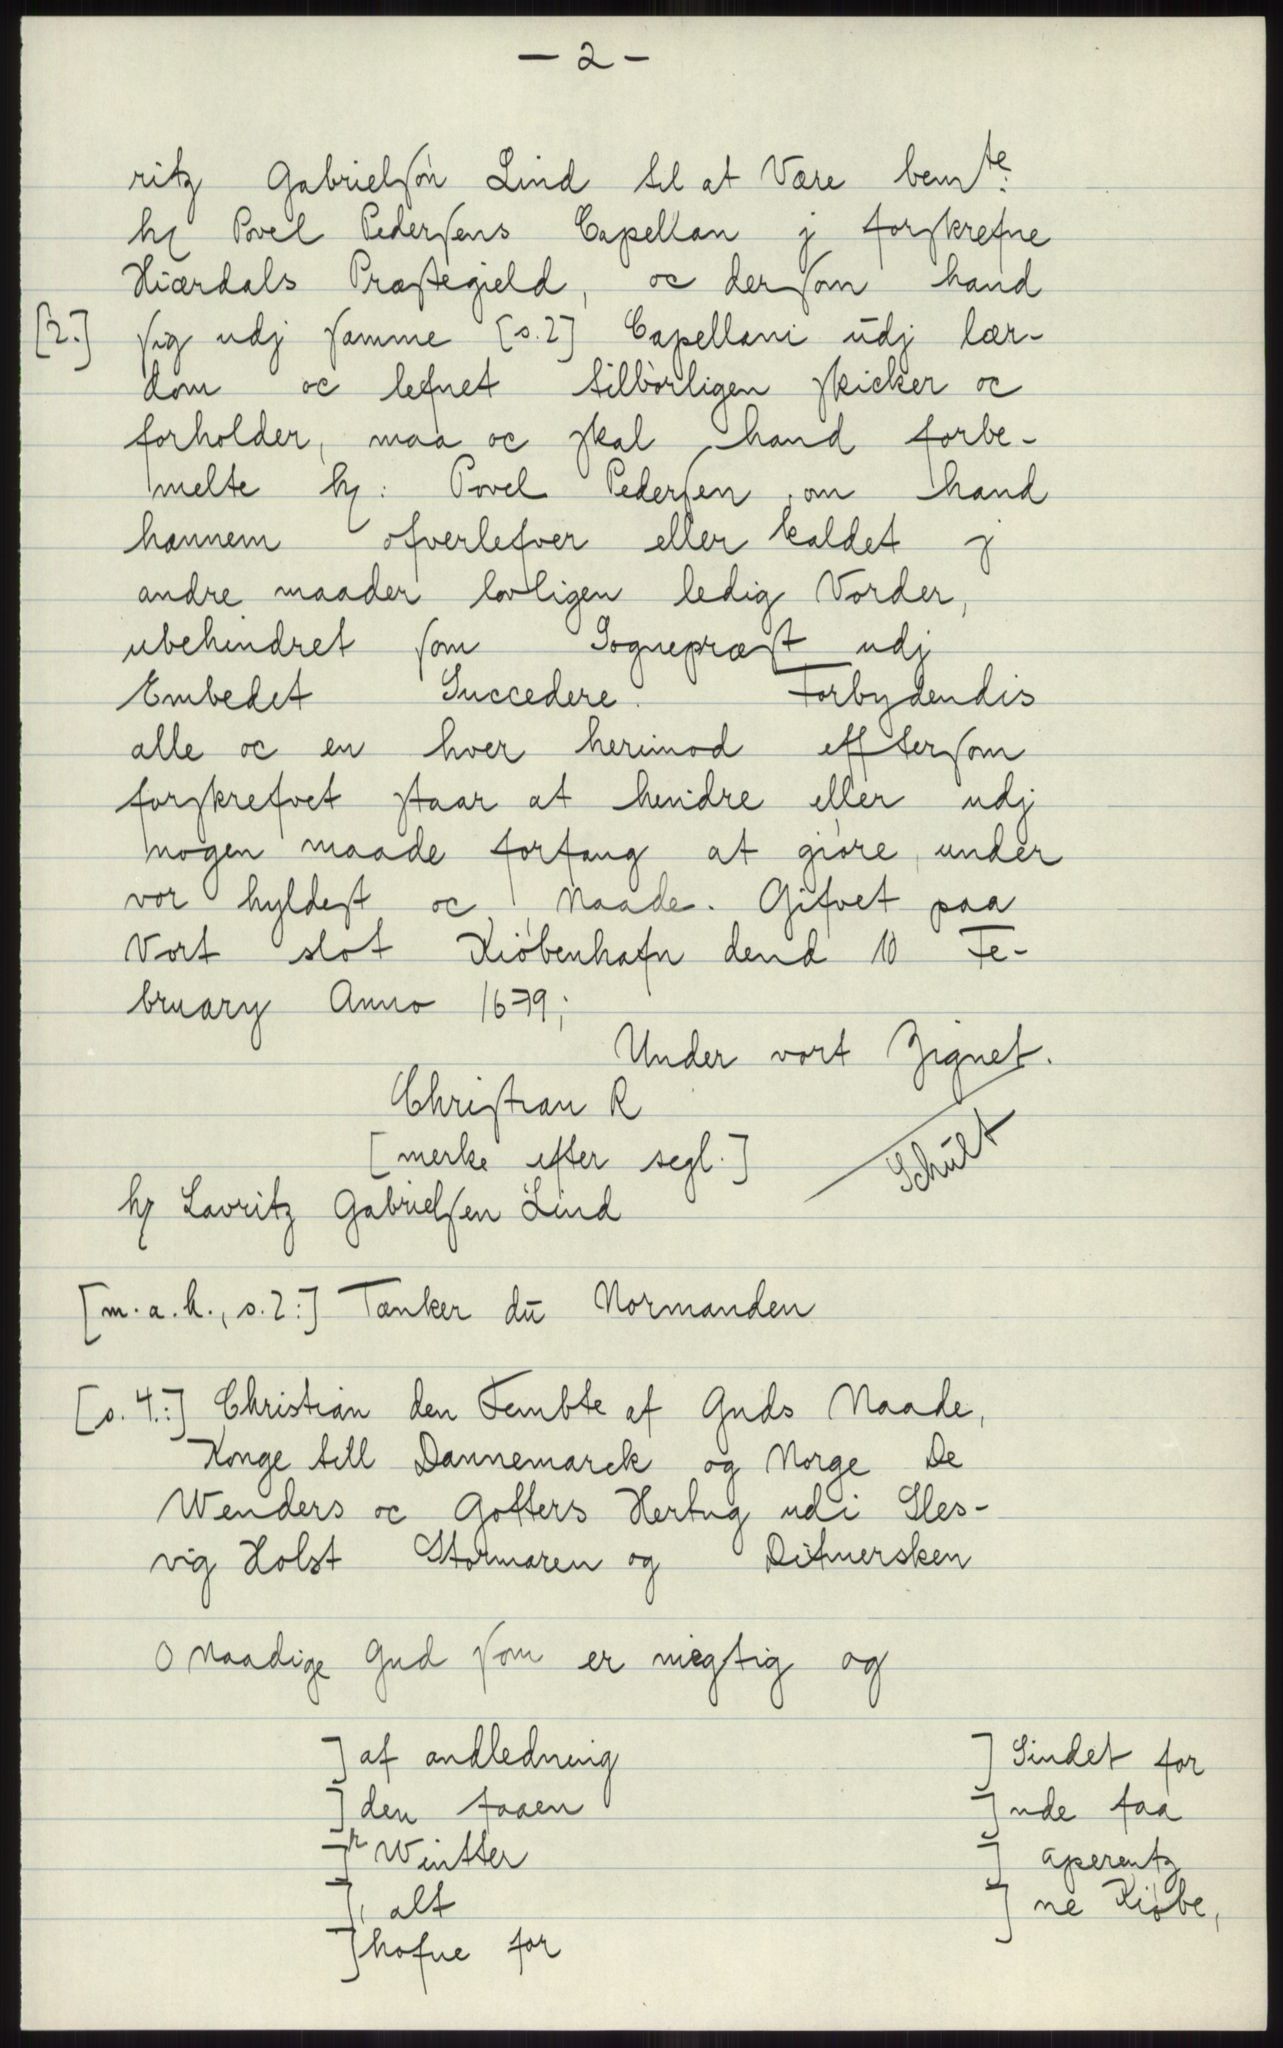 - 2 -
ritz Gabrielsøn Lind til at Være bemte:
hr Povel Pedersens Capellan j forskrefne
Hiærdals Præstegield, oc dersom hand
[2.] sig udj samme [s.2] Capellani udj lær-
dom oc lefnet tilbørligen skicker oc
forholder, maa oc skal hand forbe-
melte hr: Povel Pedersen, om hand
hannem ofverlefver eller kaldet j
andre maader lovligen ledig Vorder,
ubehindret som Sognepræst udj
Embedet Succedere. Forbydendis
alle oc en hver herimod effter som
forskrefvet staar at hindre eller udj
nogen maade forfang at giøre, under
vor hyldest oc Naade. Gifvet paa
Vort slot Kiøbenhafn dend 10 Fe-
bruary Anno 1679;
Under vort Zignet.
Christian R
[merke efter segl.]
Schult
hr Lavritz Gabrielsen Lind
[m.a.h., s.2:] Tænker du Normanden
[s. 4.:] Christian den Fembte af Guds Naade,
Konge till Dannemarck og Norge De
Wenders oc Gotters Hertug udi Sles-
vig Holst Stormaren og Ditmersken
O Naadige Gud som er megtig og
] af andledning ] Sindet for
] den faaen ] nde faa
]r Wintter ] aperentz
], alt ] ne Kiøbe,
] hofne for